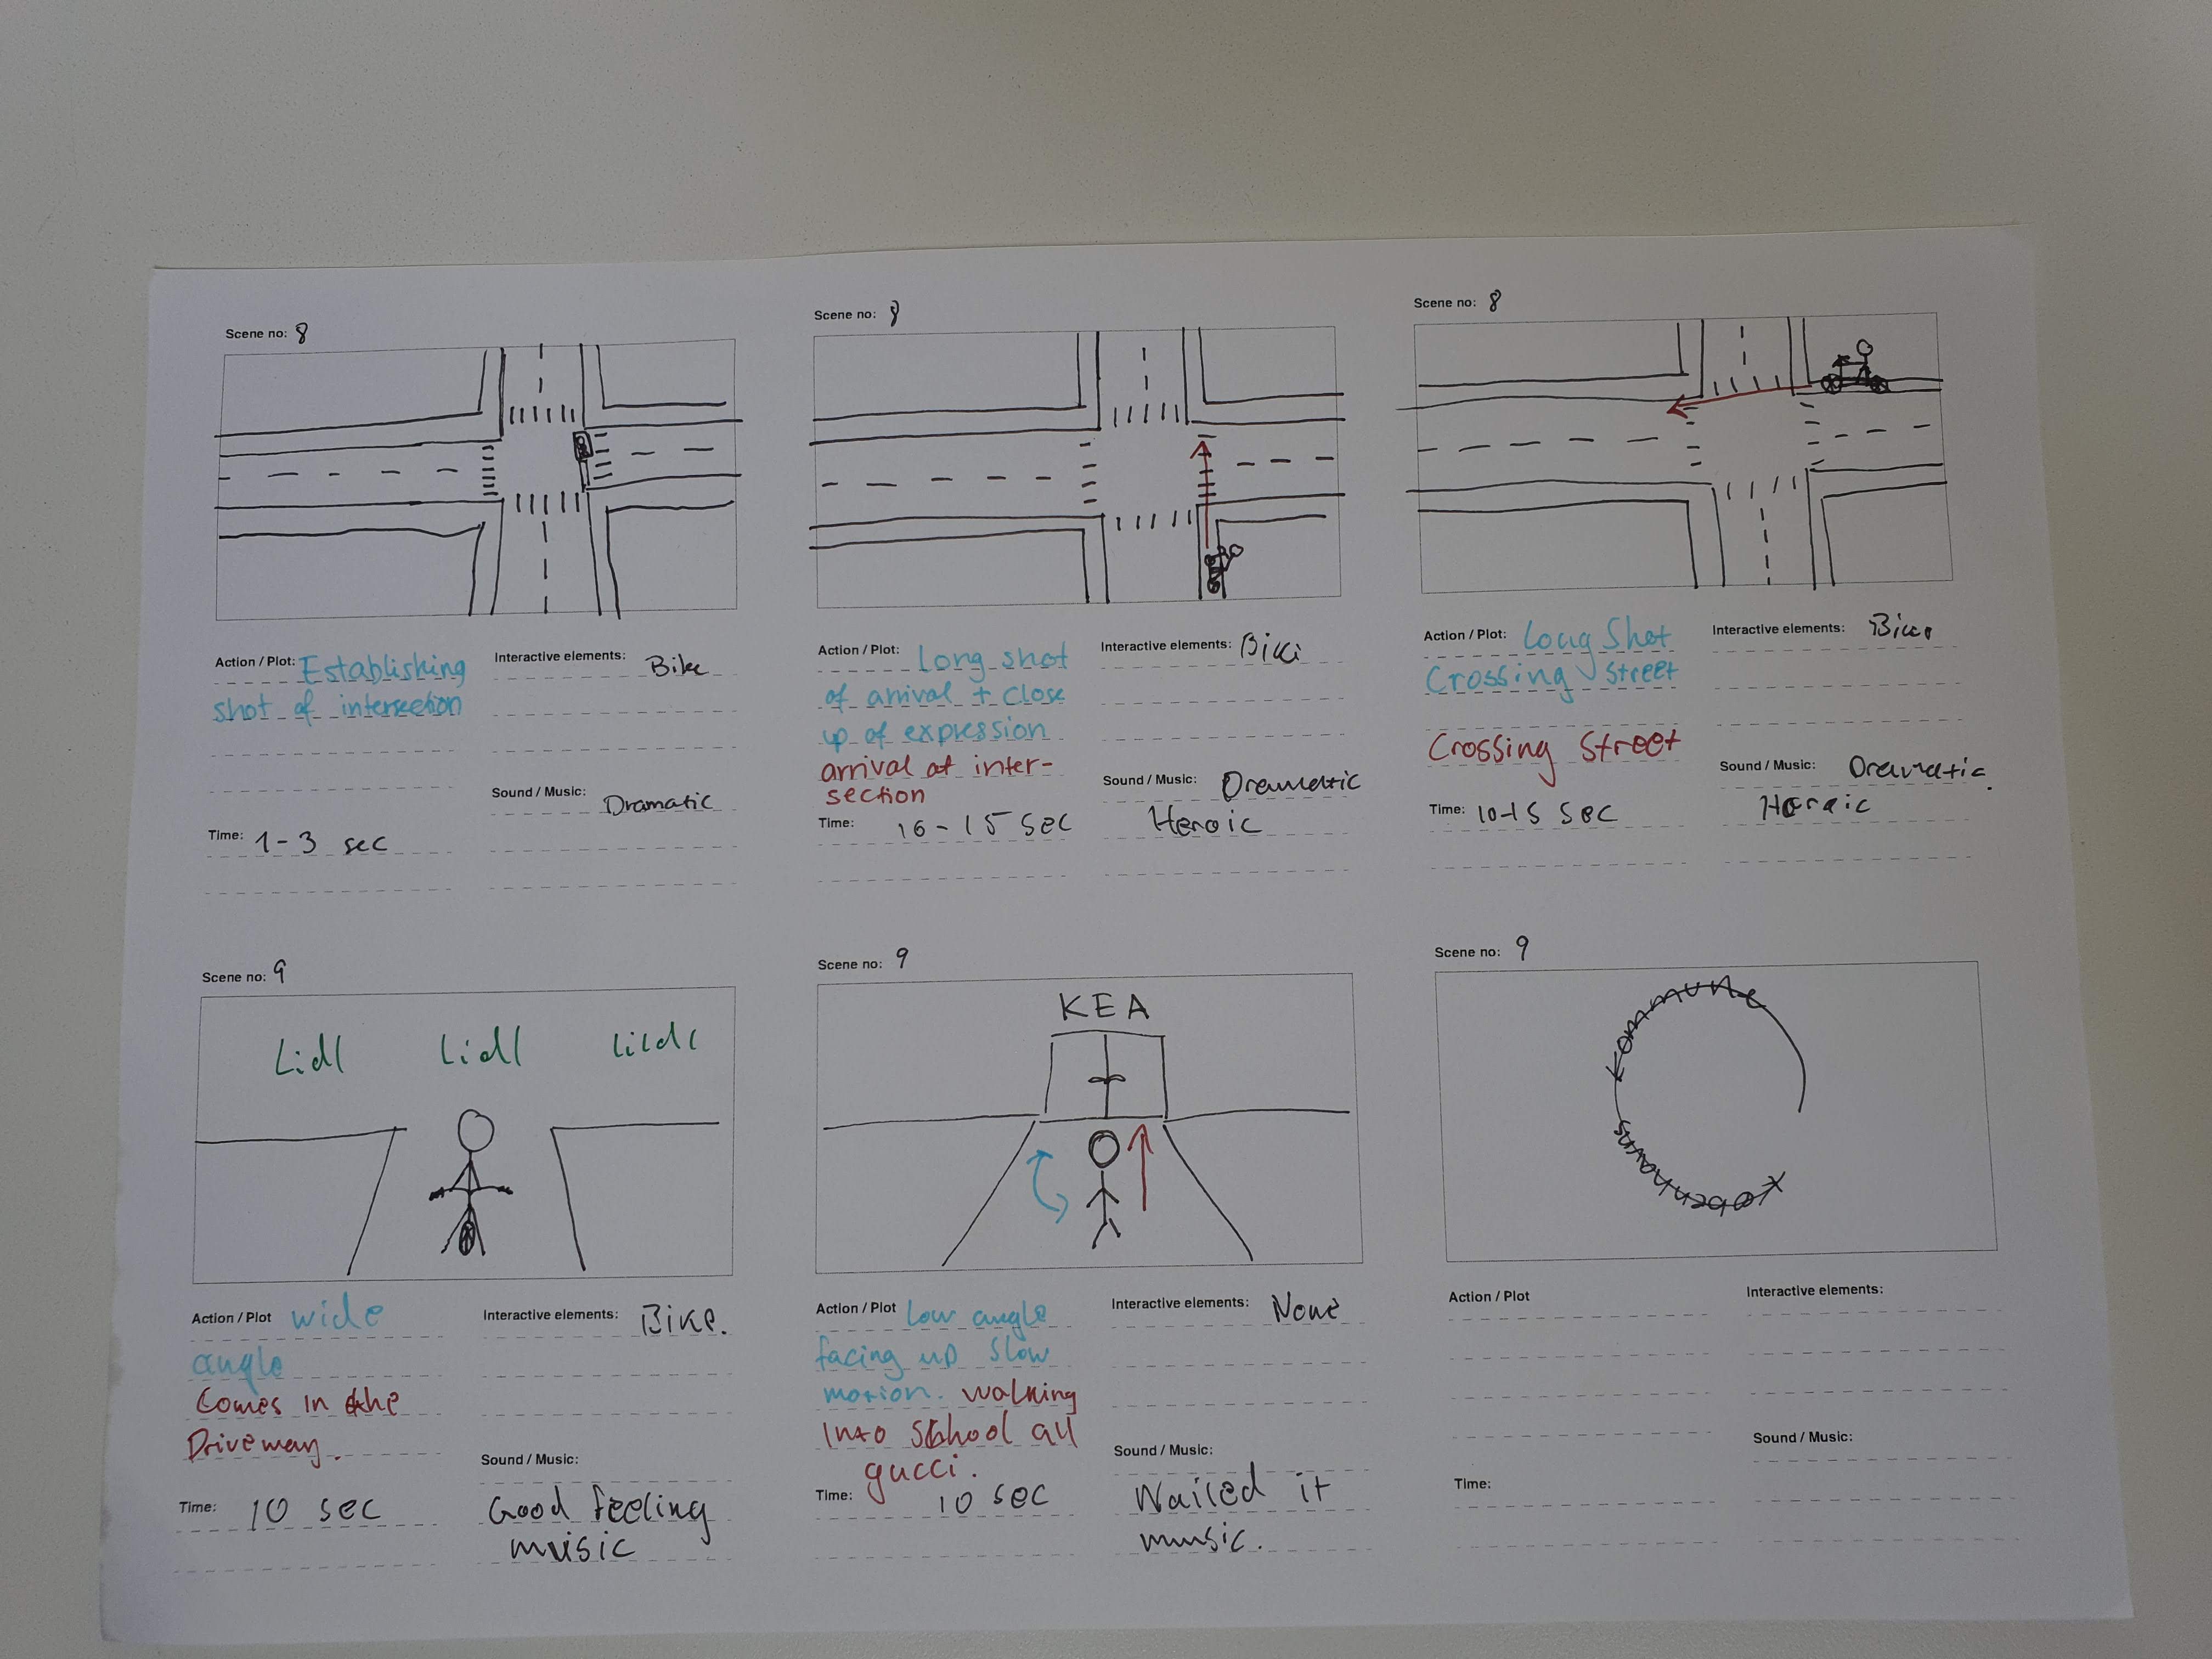 Scene no: 8
Action / Plot: Establishing
shot of intersection
Interactive elements: Bike
Sound / Music: Dramatic
Time: 1-3 sec
Scene no: 8
Action / Plot: Long shot
of arrival + close
up of expression
arrival at inter-
section
Interactive elements:
Sound / Music: Dramatic
Heroic
Time: 10-15 sec
Scene no: 8
Action / Plot: Long Shot
Crossing Street
Crossing Street
Interactive elements:
Sound / Music: Dramatic.
Heroic
Time: 10-15 sec
Scene no: 9
Lidl Lidl Lildl
Action / Plot wide
angle
Comes in the
Driveway.
Interactive elements: Bike.
Sound / Music:
Good feeling
music
Time: 10 sec
Scene no: 9
KEA
Action / Plot Low angle
facing up slow
motion. walking
Into school all
gucci.
Interactive elements: None
Sound / Music:
Nailed it
music.
Time: 10 sec
Scene no: 9
Københavns
Kommune
Action / Plot
Interactive elements:
Sound / Music:
Time: